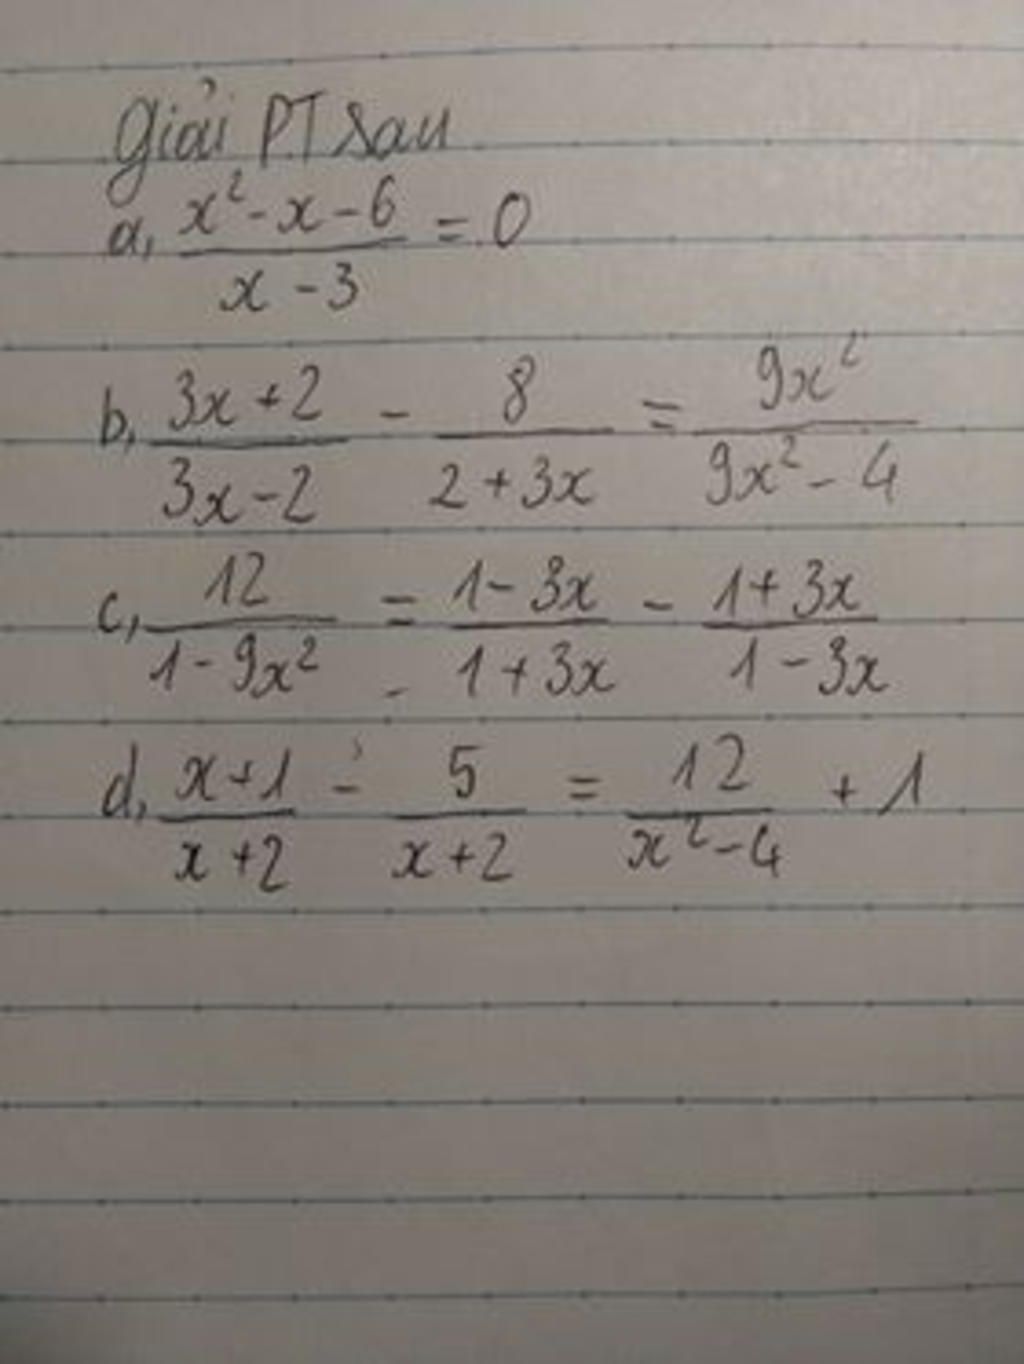 Giải PT sau
a, (x² - x - 6)/(x - 3) = 0
b, (3x + 2)/(3x - 2) - 8/(2 + 3x) = 9x²/(9x² - 4)
c, 12/(1 - 9x²) = (1 - 3x)/(1 + 3x) - (1 + 3x)/(1 - 3x)
d, (x + 1)/(x + 2) - 5/(x + 2) = 12/(x² - 4) + 1